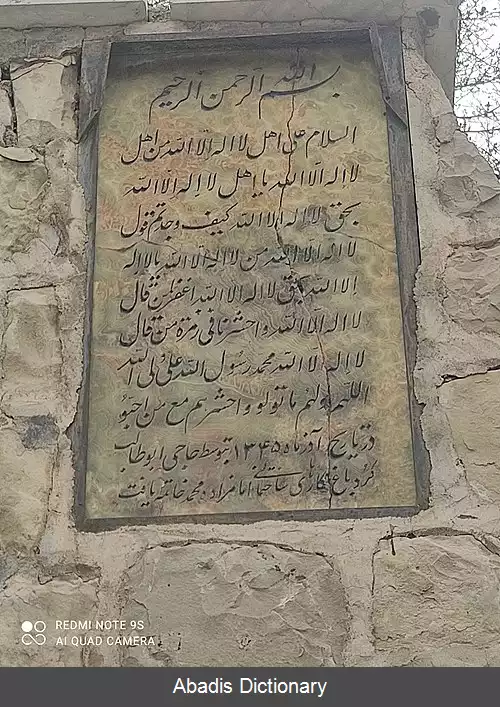 بسم الله الرحمن الرحیم
السلام علی اهل لا اله الا الله من اهل
لا اله الا الله یا اهل لا اله الا الله
بحق لا اله الا الله کیف وجدتم قول
لا اله الا الله من لا اله الا الله یا لا اله
الا الله بحق لا اله الا الله اغفر لمن قال
لا اله الا الله واحشرنا فی زمرة من قال
لا اله الا الله محمد رسول الله علی ولی الله
اللهم ولهم ما تولو واحشرهم مع من احبو
در تاریخ آذر ماه ۱۳۴۵ بتوسط حاجی ابوطالب
کرد باغ ساختمان امامزاده محمد خاتمه یافت
REDMI NOTE 9S
AI QUAD CAMERA
Abadis Dictionary